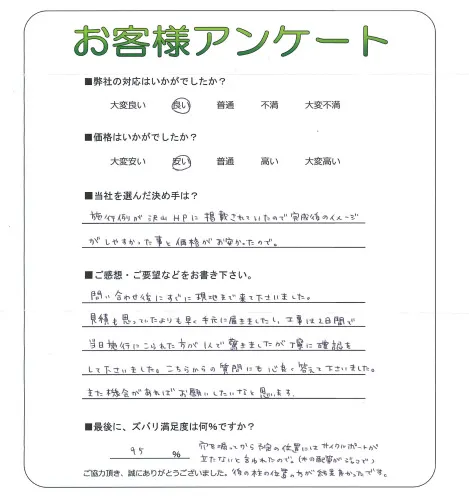 お客様アンケート
■弊社の対応はいかがでしたか?
大変良い 良い 普通 不満 大変不満
■価格はいかがでしたか?
大変安い 安い 普通 高い 大変高い
■当社を選んだ決め手は?
施行例が沢山HPに掲載されていたので完成後のイメージ
がしやすかった事と価格がお安かったので。
■ご感想・ご要望などをお書き下さい。
問い合わせ後にすぐに現地まで来て下さいました。
見積も思っていたよりも早く手元に届きましたし、工事は2日間で
当日施行にこられた方が1人で驚きましたが丁寧に確認を
して下さいました。こちらからの質問にも心良く答えて下さいました。
また機会があればお願いしたいなと思います。
■最後に、ズバリ満足度は何%ですか?
95 %
穴を掘ってから予定の位置にはサイクルポートが
立たないと言われたので。(水の配管が
後の柱の位置の方が結果良かったです。
ご協力頂き、誠にありがとうございました。